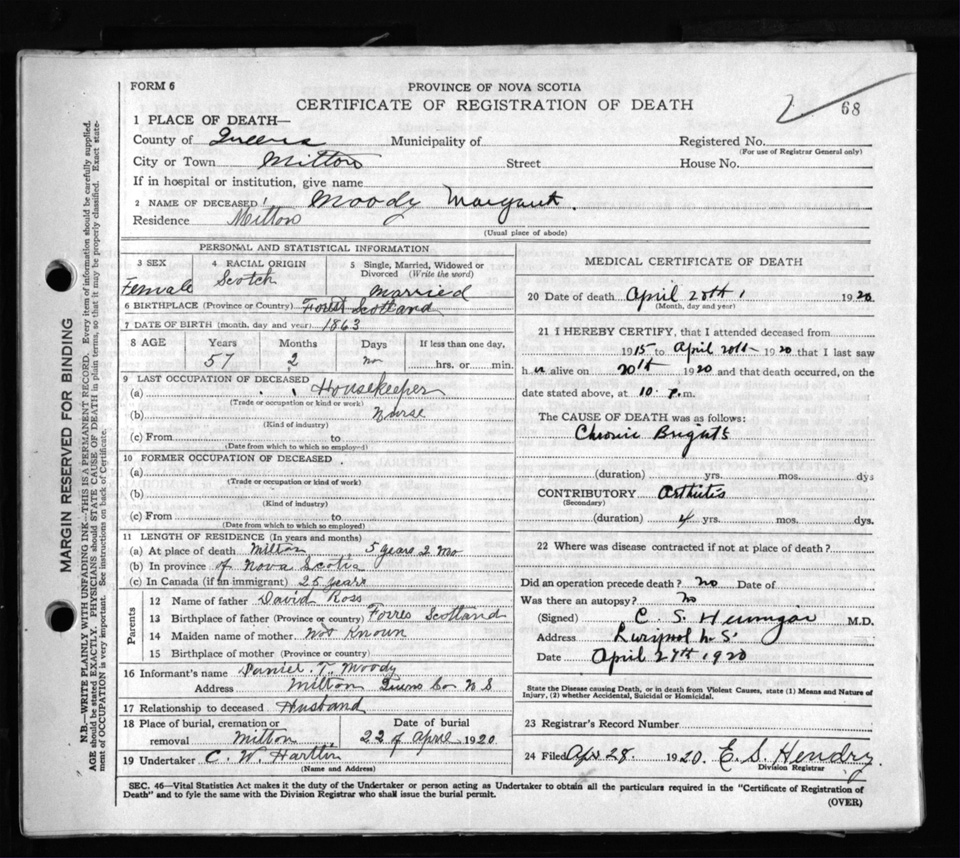 FORM 6
PROVINCE OF NOVA SCOTIA
CERTIFICATE OF REGISTRATION OF DEATH
68
1 PLACE OF DEATH—
County of Queens Municipality of Registered No.
(For use of Registrar General only)
City or Town Milton Street House No.
If in hospital or institution, give name
2 NAME OF DECEASED Moody Margaret.
Residence Milton
(Usual place of abode)
PERSONAL AND STATISTICAL INFORMATION
3 SEX Female
4 RACIAL ORIGIN Scotch
5 Single, Married, Widowed or Divorced (Write the word) Married
6 BIRTHPLACE (Province or Country) Scotland
7 DATE OF BIRTH (month, day and year) 1863
8 AGE Years Months Days If less than one day,
57 2 no hrs. or min.
9 LAST OCCUPATION OF DECEASED
(a) Housekeeper
(Trade or occupation or kind or work)
(b) Nurse
(Kind of industry)
(c) From to
(Date from which to which so employed)
10 FORMER OCCUPATION OF DECEASED
(a)
(Trade or occupation or kind of work)
(b)
(Kind of industry)
(c) From to
(Date from which to which so employed)
11 LENGTH OF RESIDENCE (In years and months)
(a) At place of death Milton 5 years 2 Mo
(b) In province of Nova Scotia
(c) In Canada (if an immigrant) 25 years
Parents
12 Name of father David Ross
13 Birthplace of father (Province or country) Forres Scotland
14 Maiden name of mother Not Known
15 Birthplace of mother (Province or country)
16 Informant's name Daniel T. Moody
Address Milton Queens Co N S
17 Relationship to deceased Husband
18 Place of burial, cremation or removal Milton
Date of burial 22 of April 1920
19 Undertaker C. W. Hartlin
(Name and Address)
MEDICAL CERTIFICATE OF DEATH
20 Date of death April 20th 1920
(Month, day and year)
21 I HEREBY CERTIFY, that I attended deceased from
1915 to April 20th 1920 that I last saw
her alive on 20th 1920 and that death occurred, on the
date stated above, at 10 P.m.
The CAUSE OF DEATH was as follows:
Chronic Brights
(duration) yrs. mos. dys
CONTRIBUTORY Arthritis
(Secondary)
(duration) 4 yrs. mos. dys.
22 Where was disease contracted if not at place of death?
Did an operation precede death? No Date of
Was there an autopsy? No
(Signed) C. S. M.D.
Address Liverpool N.S.
Date April 27th 1920
State the Disease causing Death, or in death from Violent Causes, state (1) Means and Nature of
Injury, (2) whether Accidental, Suicidal or Homicidal.
23 Registrar's Record Number
24 Filed Apr 28. 1920. E. S. Hendry.
Division Registrar
SEC. 46—Vital Statistics Act makes it the duty of the Undertaker or person acting as Undertaker to obtain all the particulars required in the "Certificate of Registration of
Death" and to fyle the same with the Division Registrar who shall issue the burial permit.
(OVER)
MARGIN RESERVED FOR BINDING
N.B.—WRITE PLAINLY WITH UNFADING INK—THIS IS A PERMANENT RECORD. Every item of information should be carefully supplied.
AGE should be stated EXACTLY. PHYSICIANS should STATE CAUSE OF DEATH in plain terms, so that it may be properly classified. Exact state-
ment of OCCUPATION is very important. See instructions on back of Certificate.